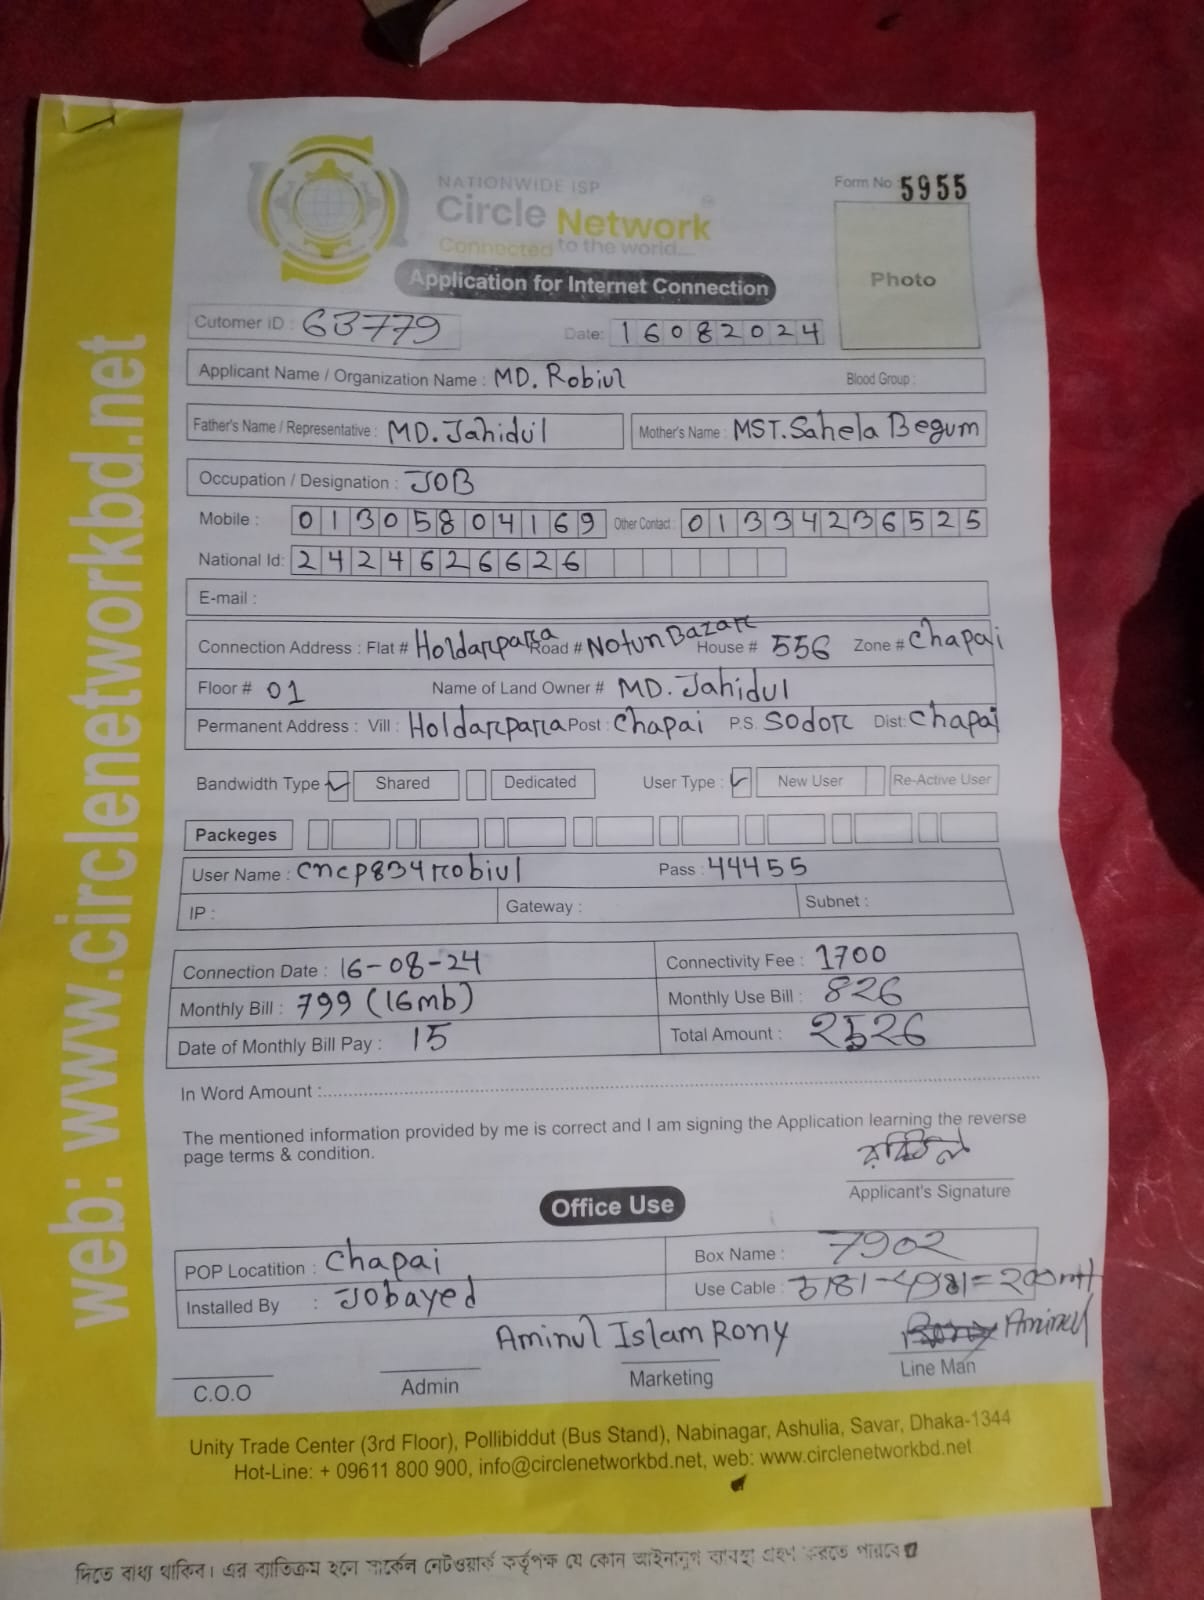 web: www.circlenetworkbd.net
NATIONWIDE ISP
Circle Network
Connected to the world....
Form No 5955
Photo
Application for Internet Connection
Cutomer iD : 63779 Date: 16082024
Applicant Name / Organization Name : MD. Robiul Blood Group :
Father's Name / Representative : MD. Jahidul Mother's Name : MST. Sahela Begum
Occupation / Designation : JOB
Mobile : 01305804169 Other Contact : 01334236525
National Id: 2424626626
E-mail :
Connection Address : Flat # Holdarpara Road # Notun Bazar House # 556 Zone # Chapai
Floor # 01 Name of Land Owner # MD. Jahidul
Permanent Address : Vill : Holdarpara Post : Chapai P.S. Sodor Dist: Chapai
Bandwidth Type ✓ Shared Dedicated User Type : ✓ New User Re-Active User
Packeges
User Name : cncp834robiul Pass : 44455
IP : Gateway : Subnet :
Connection Date : 16-08-24 Connectivity Fee : 1700
Monthly Bill : 799 (16mb) Monthly Use Bill : 826
Date of Monthly Bill Pay : 15 Total Amount : 2526
In Word Amount :
The mentioned information provided by me is correct and I am signing the Application learning the reverse
page terms & condition.
রবিউল
Applicant's Signature
Office Use
POP Locatition : Chapai Box Name : 7902
Installed By : Jobayed Use Cable : 3181-4981=200mt
Aminul Islam Rony Aminul
C.O.O Admin Marketing Line Man
Unity Trade Center (3rd Floor), Pollibiddut (Bus Stand), Nabinagar, Ashulia, Savar, Dhaka-1344
Hot-Line: + 09611 800 900, info@circlenetworkbd.net, web: www.circlenetworkbd.net
দিতে বাধ্য থাকিব। এর ব্যতিক্রম হলে সার্কেল নেটওয়ার্ক কর্তৃপক্ষ যে কোন আইনানুগ ব্যবস্থা গ্রহণ করতে পারবে।